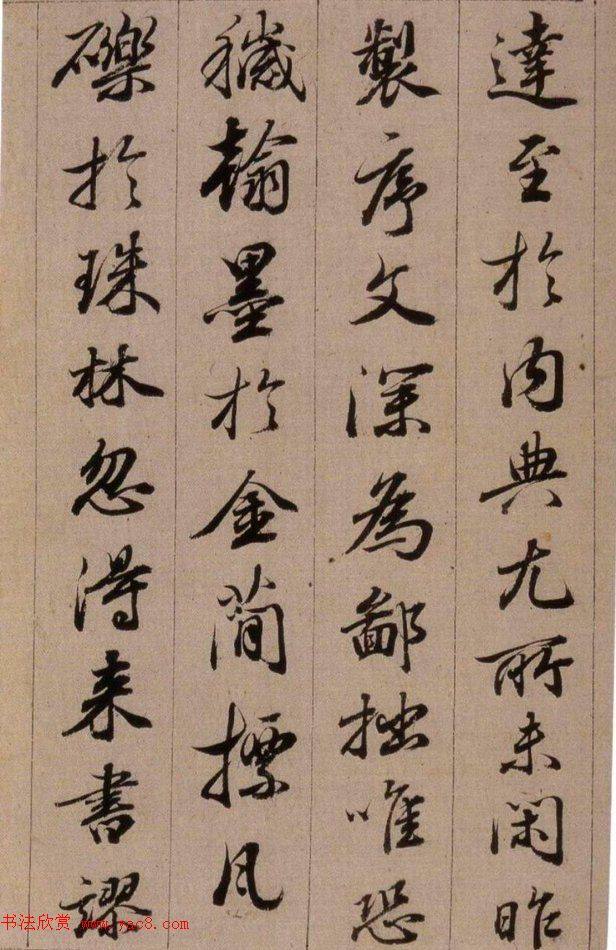 達至於内典尤所未閑昨
製序文深為鄙拙唯恐
穢翰墨於金簡摽凡
礫於珠林忽得来書謬
书法欣赏 www.yac8.com